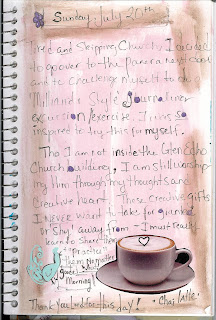 Sunday. July 26th
Tired and Skipping Church, I decided
to go over to the Panera next door
and to challenge myself to do a
Millande Style Journaliner
excursion/exercise. I was so
inspired to try this for myself.
Tho I am not inside the Glen Echo
Church building, I am still worship-
ing him through my thoughts and
Creative heart. These creative gifts
I NEVER want to take for granted
or Shy away from - I must really
learn to share them
Them No matter
Good Morning
Thank you Lord for this day! - Chai latte